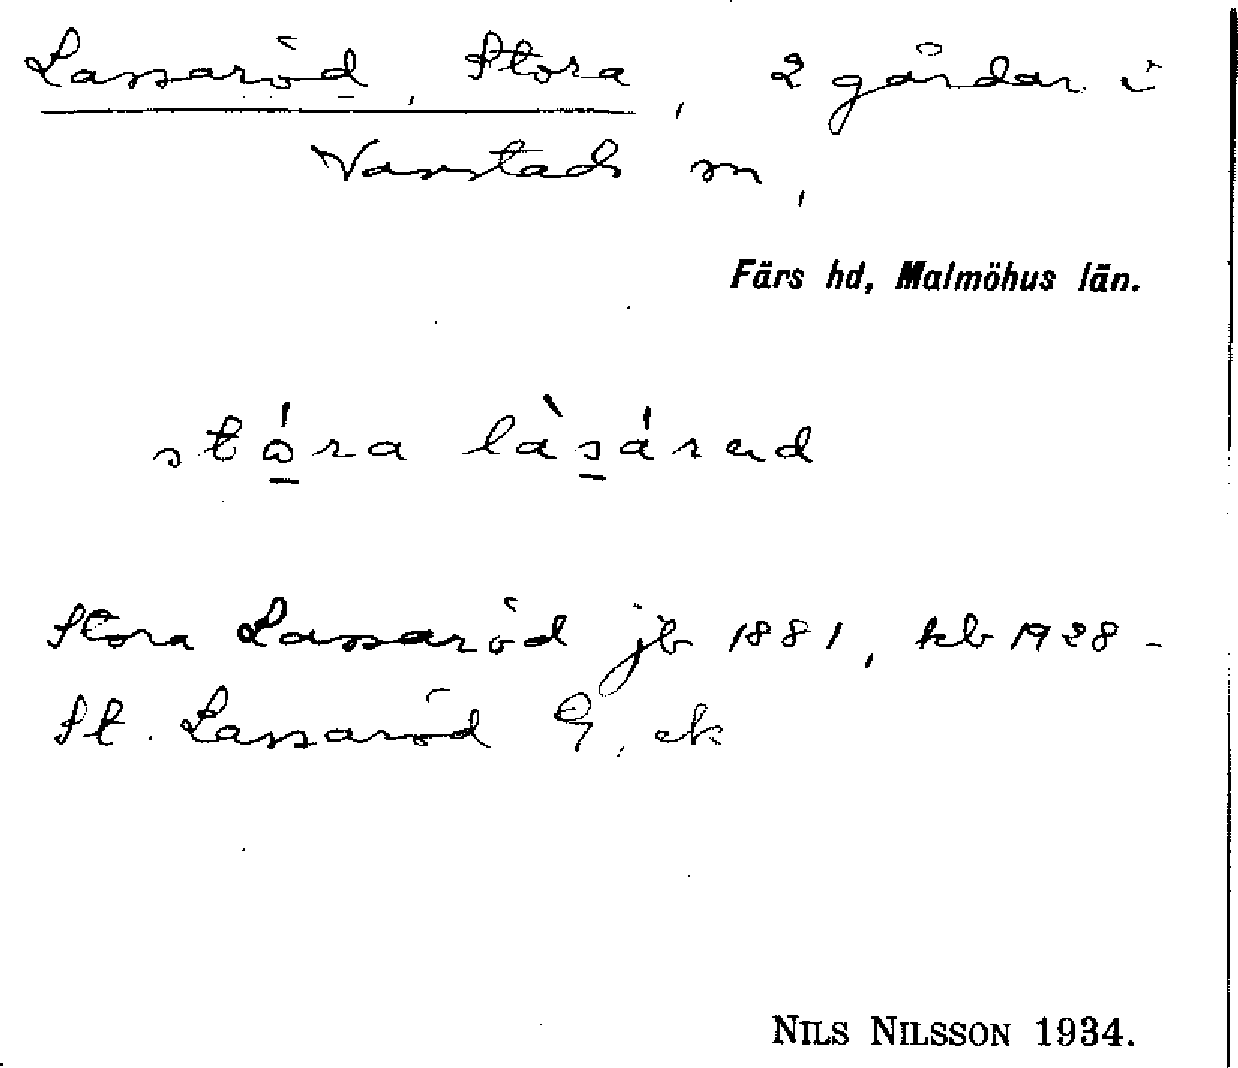 Lassaröd, Stora, 2 gårdar i
Vanstads sn,
Färs hd, Malmöhus län.
stóra làsárad
Stora Lassaröd jb 1881, kb 1928 -
St. Lassaröd G. ek
NILS NILSSON 1934.